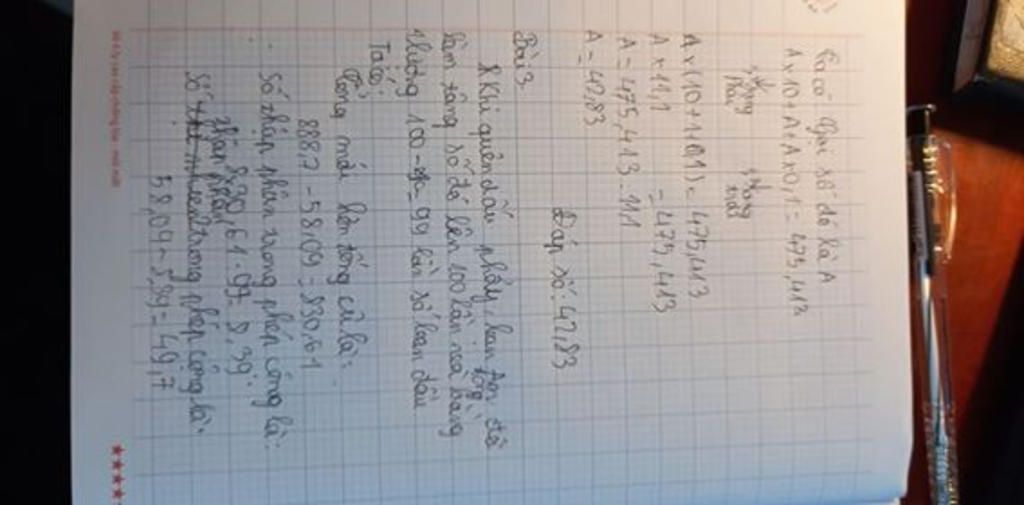 Ta có: Gọi số đó là A
A x 10 + A + A x 0,1 = 475,413
phải
trái
A x (10 + 1 + 0,1) = 475,413
A x 11,1 = 475,413
A = 475,413 : 11,1
A = 42,83
Đáp số: 42,83
Bài 3.
Khi quên dấu phẩy, bạn An đã
làm tăng số đó lên 100 lần và tổng bằng
100 - = 99 lần số ban đầu
Ta có:
Tổng mới hơn tổng cũ là:
888,7 - 58,09 = 830,61
Số thập phân trong phép cộng là:
830,61 : 99 = 8,39
Số tự nhiên trong phép cộng là:
58,09 - 8,39 = 49,7